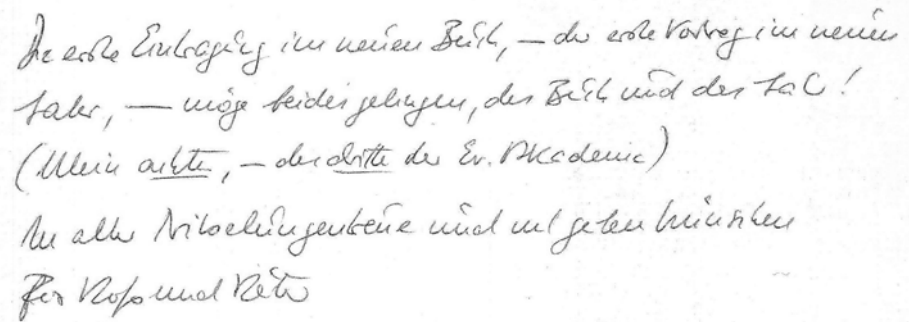 Die erste Eintragung im neuen Buch, — der erste Vortrag im neuen
Jahr, — möge beides gelingen, das Buch und das Jahr!
(Mein achter, — der dritte der Ev. Akademie)
In alter Nibelungentreue und mit guten Wünschen
für Ross und Reiter